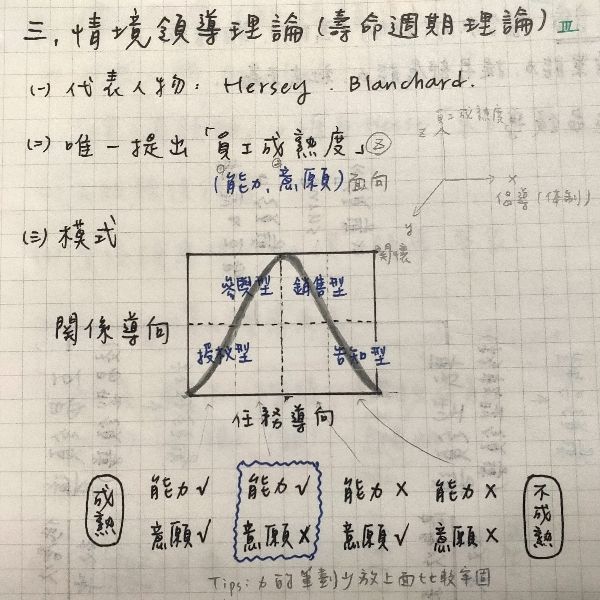 三、情境領導理論(壽命週期理論) Ⅳ
(一) 代表人物: Hersey . Blanchard.
(二) 唯一提出「員工成熟度」Z
(①能力、②意願)面向
Z 員工成熟度
X
倡導(体制)
y
關懷
(三) 模式
參與型 銷售型
關係導向
授权型 告知型
任務導向
成熟 能力✓ 能力✓ 能力× 能力× 不成熟
意願✓ 意願× 意願✓ 意願×
Tips: 力的筆劃少放上面比較牢固